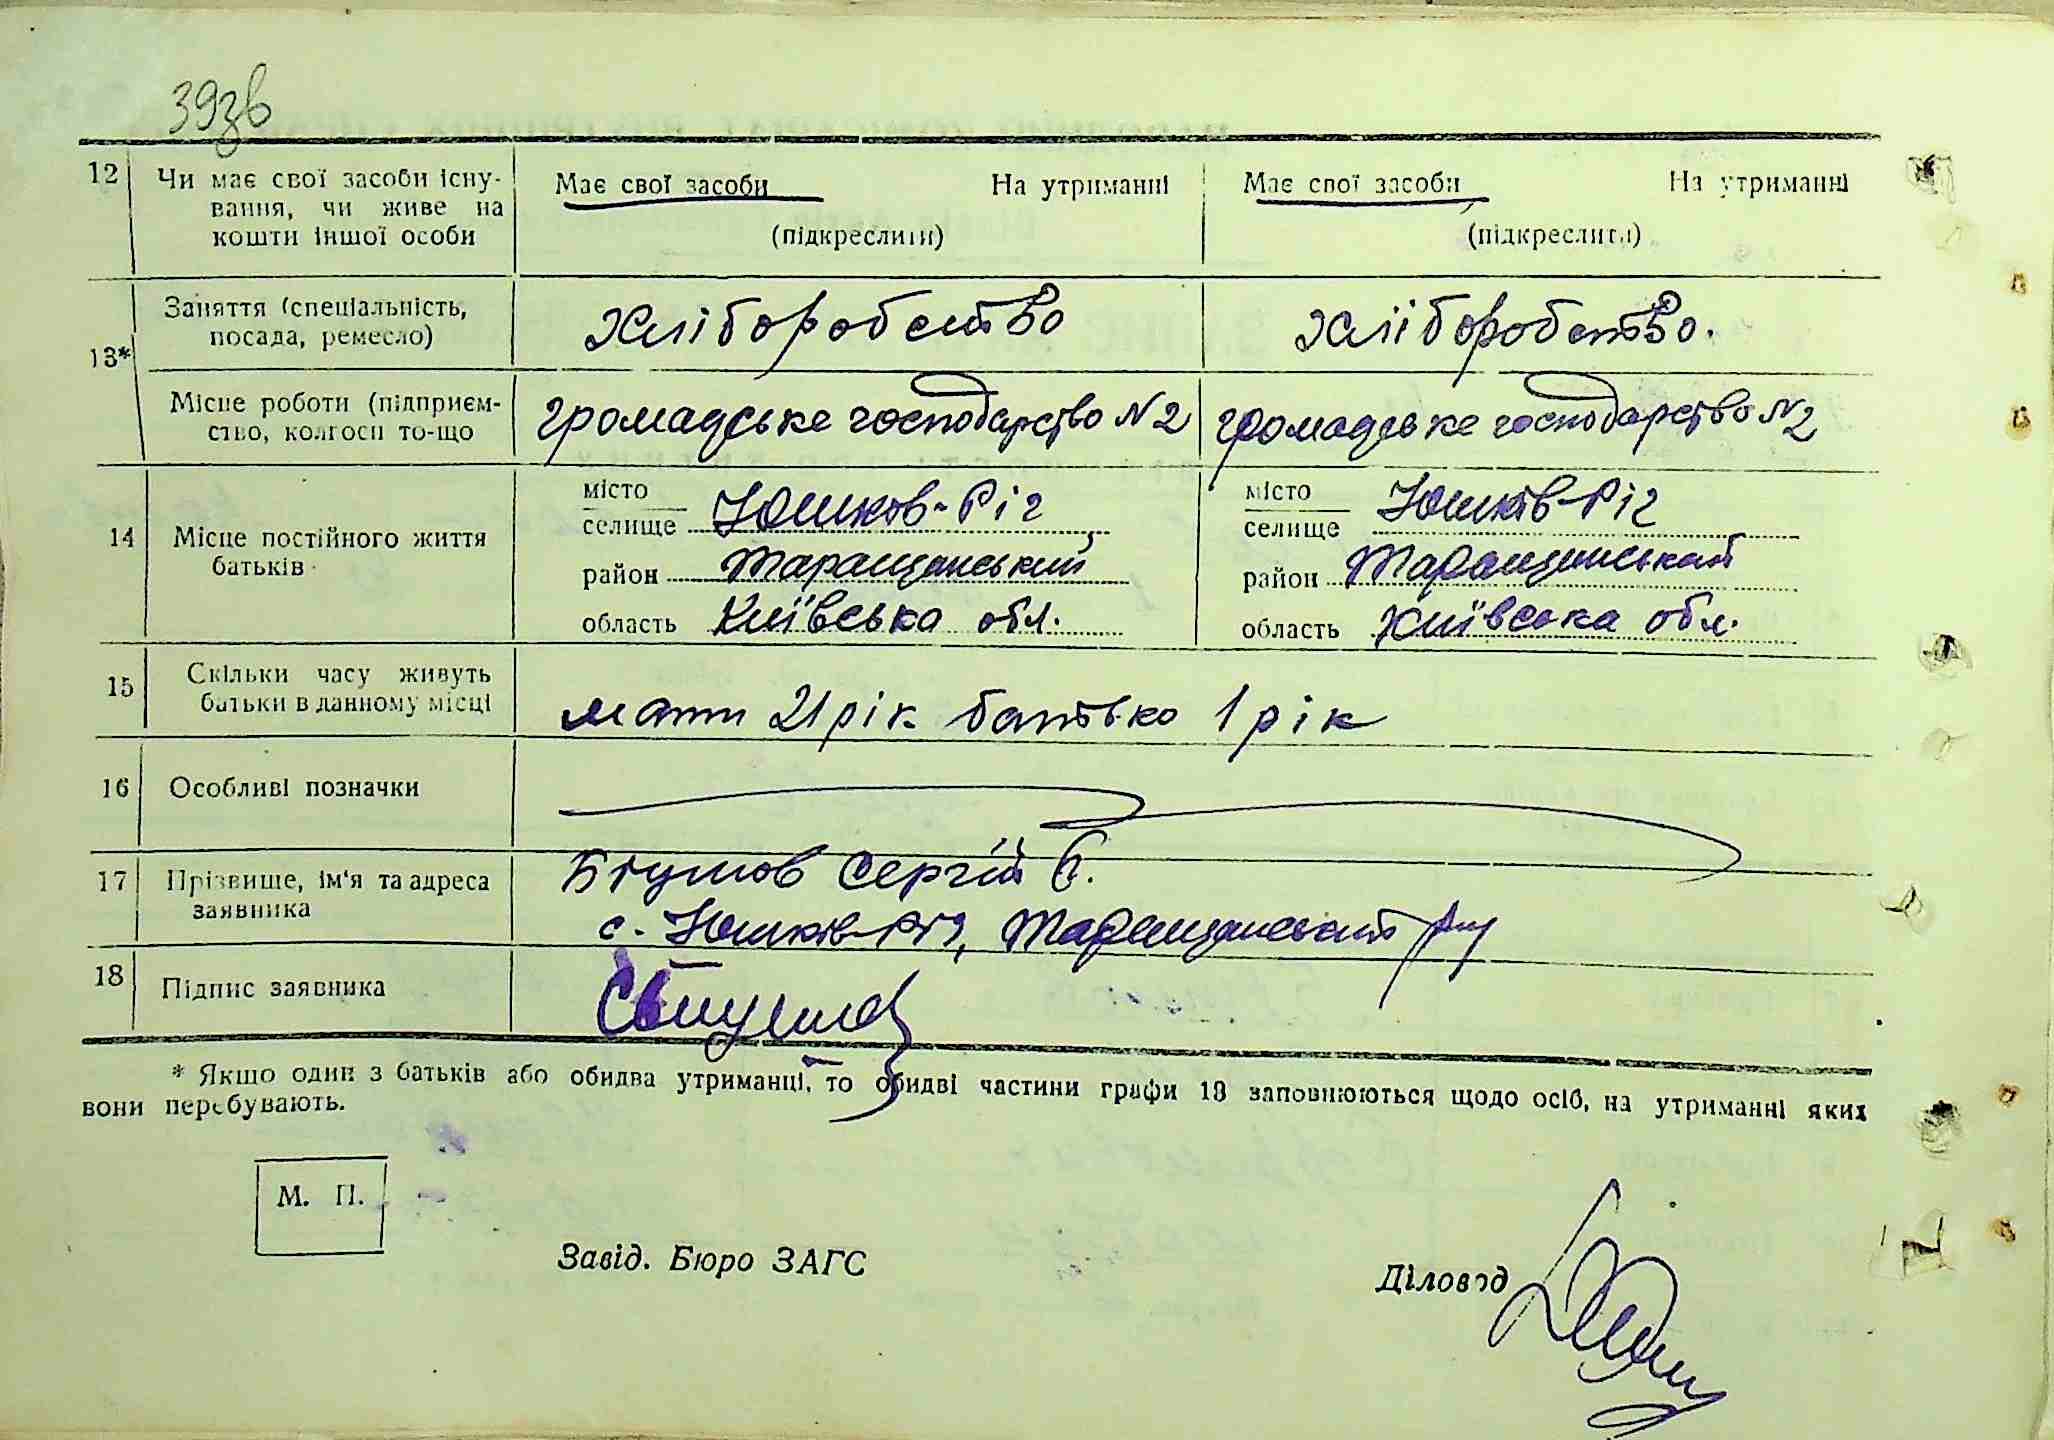 39зв
12 Чи має свої засоби існу- Має свої засоби На утриманні Має свої засоби На утриманні
вання, чи живе на
кошти іншої особи (підкреслити) (підкреслити)
13* Заняття (спеціальність, Хліборобство Хліборобство.
посада, ремесло)
Місце роботи (підприєм- громадське господарство N2 громадське господарство N2
ство, колгосп то-що
14 Місце постійного життя місто Юшков-Ріг місто Юшків-Ріг
батьків селище селище
район Таращанський район Таращанський
область Київська обл. область Київська обл.
15 Скільки часу живуть
батьки в данному місці мати 21 рік батько 1 рік
16 Особливі позначки
17 Прізвище, ім'я та адреса Сергій
заявника с. Юшків-Ріг, Таращанський р-ну
18 Підпис заявника
* Якщо один з батьків або обидва утриманці, то обидві частини графи 13 заповнюються щодо осіб, на утриманні яких
вони перебувають.
М. П.
Завід. Бюро ЗАГС Діловод